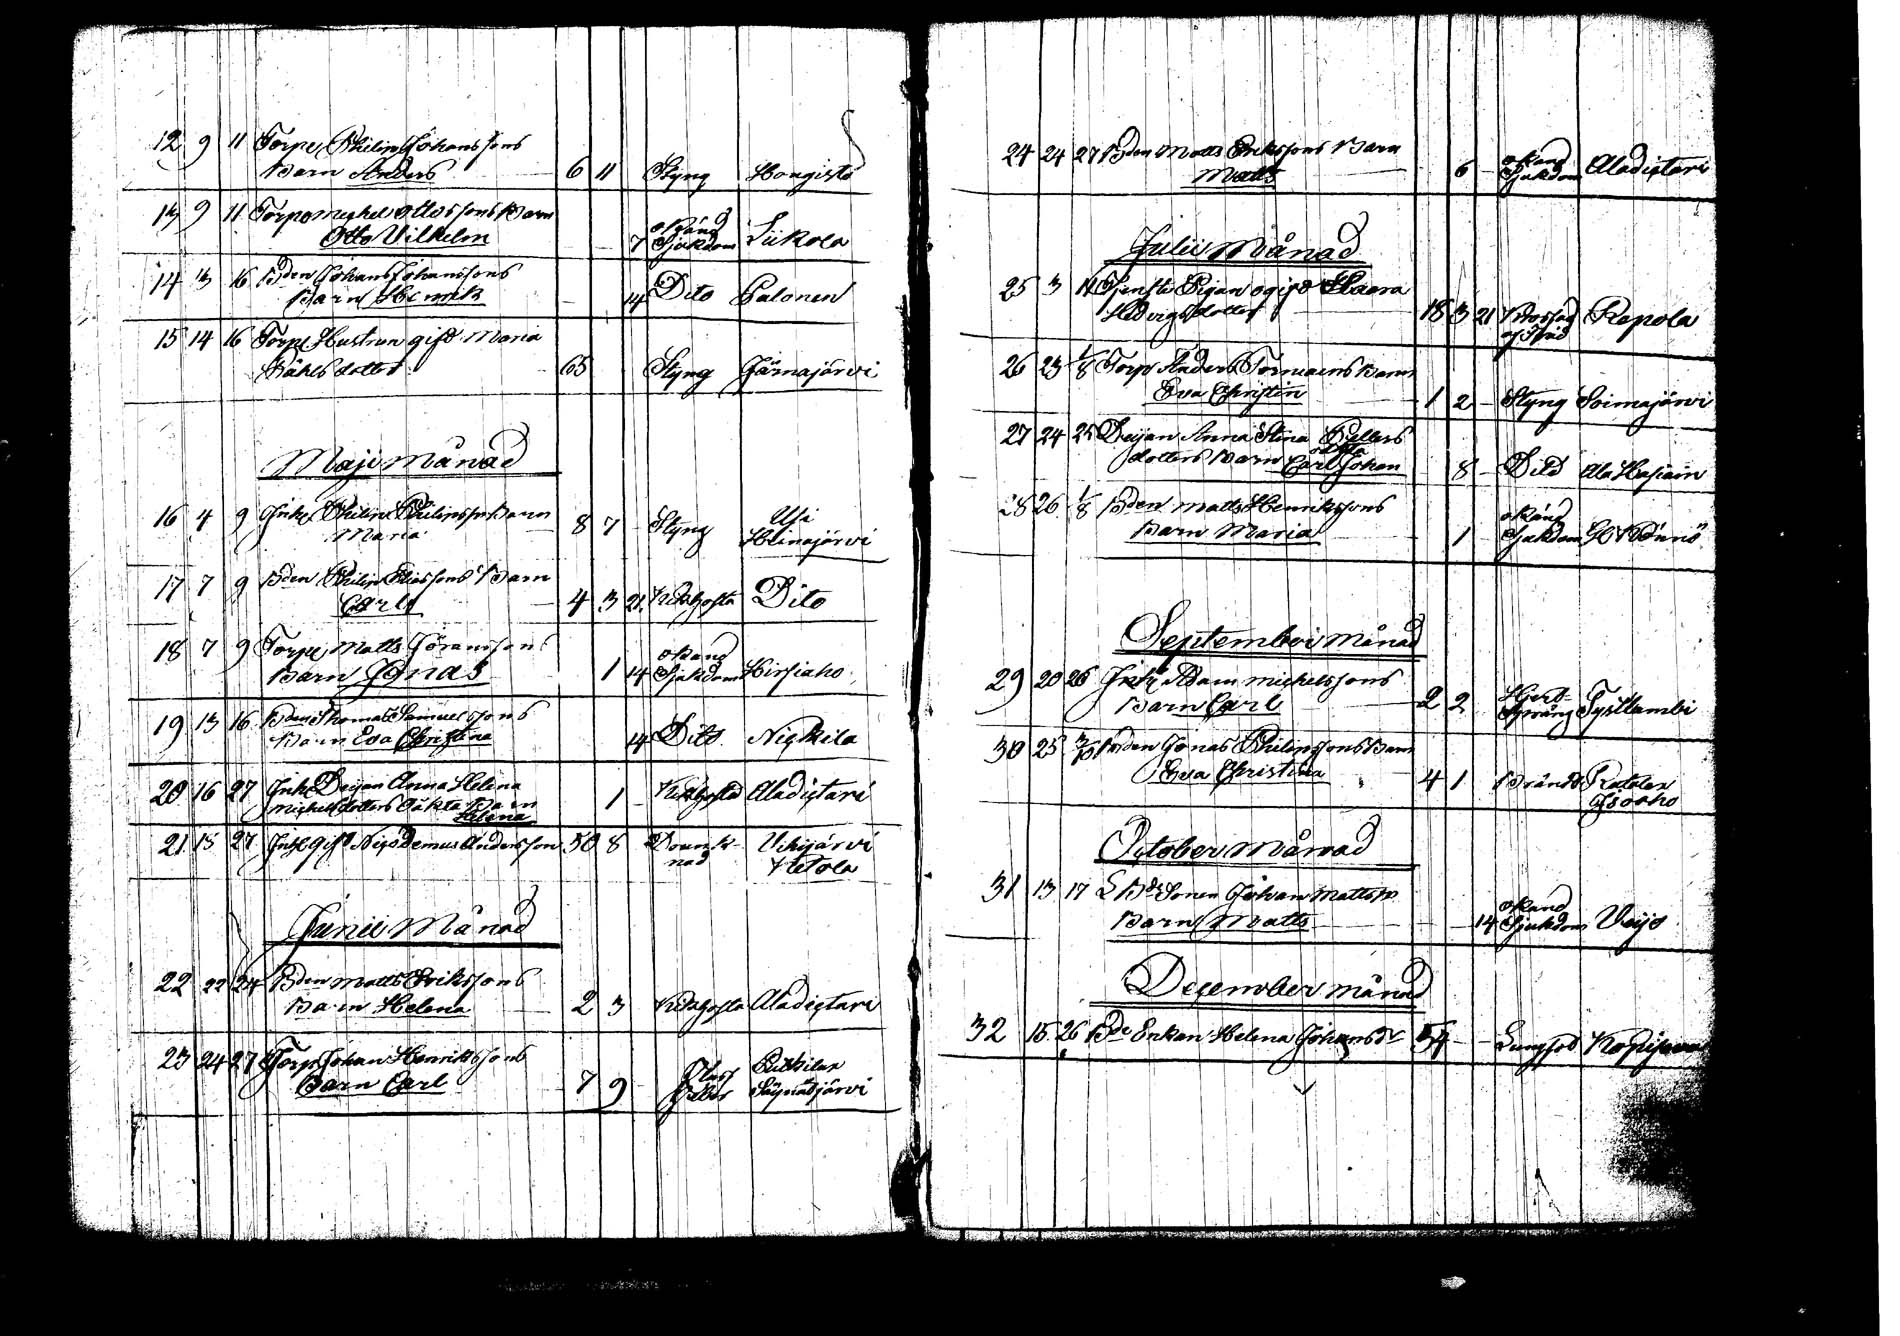 12 9 11 Torp. Philip Johanssons
Barn Anders 6 11 Styng Hongisto
13 9 11 Torp Michel Ottossons Barn
Otto Vilhelm 7 okänd Sjukdom Liikola
14 13 16 Bden Johan Johanssons
Barn Henrik 14 Dito Palonen
15 14 16 Torp Hustrun gift Maria
dotter 65 Styng Järnajärvi
Maji Månad
16 4 9 Inh Philip Philipss Barn
Maria 8 7 Styng Usi Heinajärvi
17 7 9 Bden Philip Eliassons Barn
Carl 4 3 21 Kikhosta Dito
18 7 9 Torp Matts Göranssons
Barn Jonas 1 14 okänd Sjukdom Hirsiaho
19 13 16 Bden Thomas Samuelssons
Barn Eva Christina 14 Dito Nickila
20 16 27 Inh Pigan Anna Helena
Michelsdotters oäkta Barn
Helena 1 Kikhosta Aladictari
21 15 27 Inh gift Nicodemus Andersson 50 8 Drunknad Ukijärvi
Ketola
Junii Månad
22 22 24 Bden Matts Erikssons
Barn Helena 2 3 Kikhosta Aladictari
23 24 27 Torp Johan Henrikssons
Barn Carl 7 9 feber Säynätjärvi
24 24 27 Bden Matts Erikssons Barn
Matts 6 okänd Sjukdom Aladictari
Julii Månad
25 3 11 Tjenste Pigan ogift Kaara
Hedvigsdotter 18 3 21 Repola
26 23 1/8 Torp Anders Tornianens Barn
Eva Christin 1 2 Styng Soimajärvi
27 24 25 Pigan Anna Stina
dotters oäkta Barn Carl Johan 8 Dito Ala
28 26 1/8 Bden Matts Henrikssons
Barn Maria 1 okänd Sjukdom
September månad
29 20 26 Inh Adam Michelssons
Barn Carl 2 2 Tystlambi
30 25 3/10 Bden Jonas Philipssons Barn
Eva Christina 4 1
October Månad
31 13 17 Bde Sonen Johan Mattss
Barn Matts 14 okänd Sjukdom Veijo
December månad
32 15 26 Bde Enkan Helena Johansdr 54 Lungsot